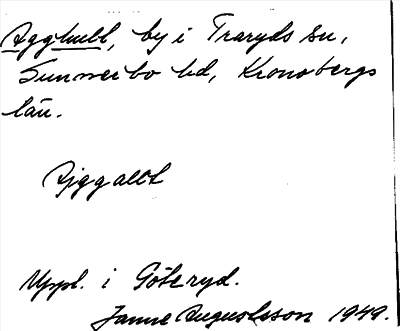 Agghult, by i Traryds sn,
Sunnerbo hd, Kronobergs
län.
Uppl. i Göteryd.
Janne Augustsson 1949.